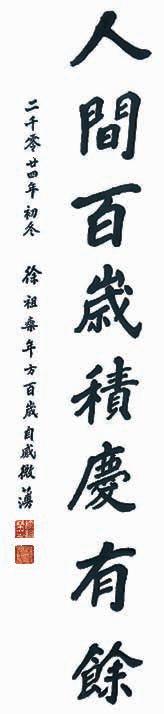 人間百歲積慶有餘
二千零廿四年初冬 徐祖燊年方百歲自感微藹